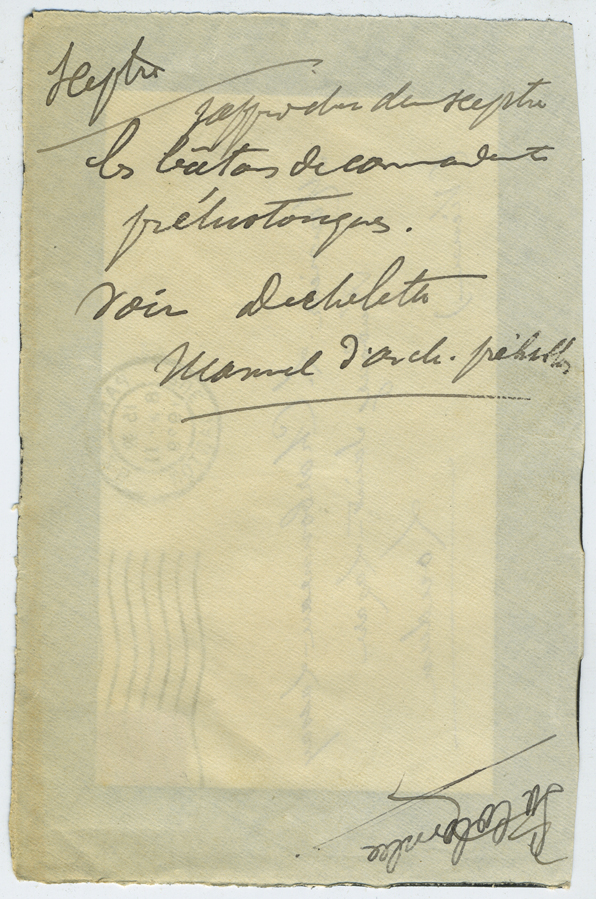 Sceptre
rapprocher du sceptre
les bâtons de commandement
préhistoriques.
voir Dechelette
Manuel d'arch. préhist